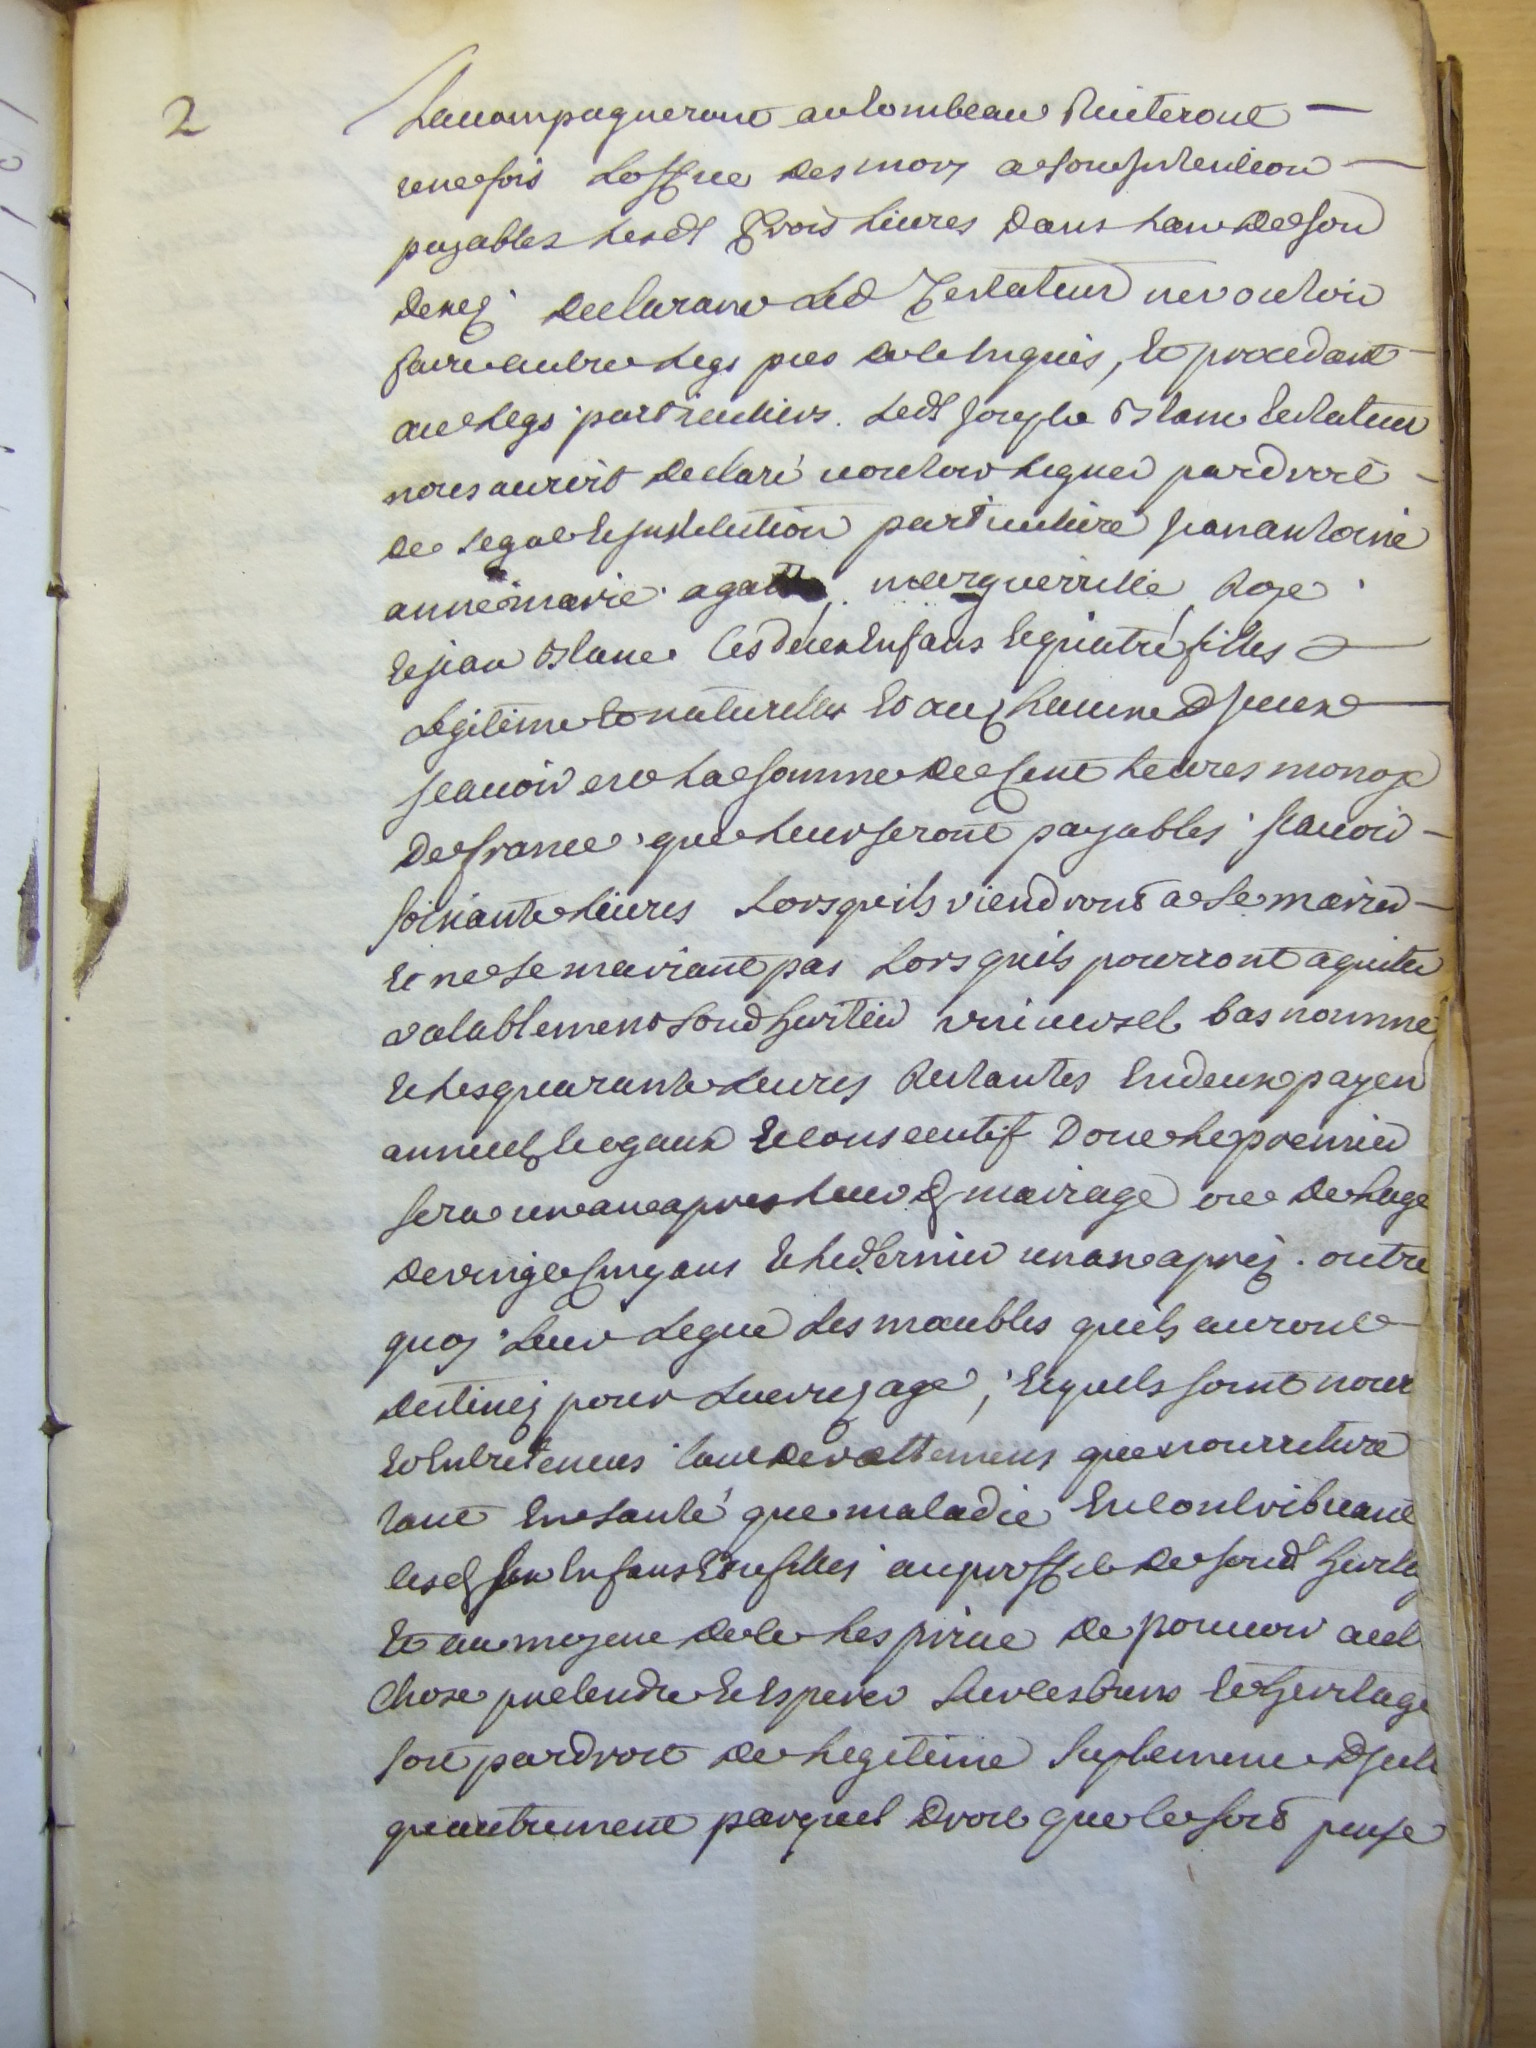 2
Lacompagneront au tombeau Reciteront
une fois Loffice des mors a son Intention
payables Lesd. Trois Livres dans Lan de son
deces declarant Led Testateur ne vouloir
faire autre Legs pies de ce Enquis, Et procedant
aux Legs particuliers. Ledt Joseph Blanc testateur
nous auroit declaré vouloir Leguer par droit
de Legat et Institution particuliere Jean antoine
anne marie agathe, marguerritte, Roze
Et jean Blanc Ces deux Enfans Et quatre filles
Legitime Et naturelles Et a un chaqune Dyceux
scavoir est La somme de Cent Livres monoye
de france que Leur seront payables scavoir
soixante Livres Lorsquils viendront a se marier
Et ne se mariant pas Lors quils pourront aquiter
valablement sond heritier universel bas nommé
Et Les quarante Livres Restantes En deux payem
annuels Et egaux Et consecutif Dont Le premier
sera un an apres Leurd mairage ou de Lage
de vingt Cinq ans Et Le dernier un an apres. outre
quoy Leur Legue Les maubles quils auront
destines pour Leur usage, Et quils soint nour
Et Entretenus tant de vettemens que nourriture
tant En santé que maladie En contribuant
lesd Enfans Et filles au proffit de sond herite
Et au moyen de ce Les prive de pouvoir autre
Chose pretendre Et Esperer sur ces biens Et heritage
soit par droit de Legitime suplement Dycelle
quautrement par quel droit que ce soit puisse